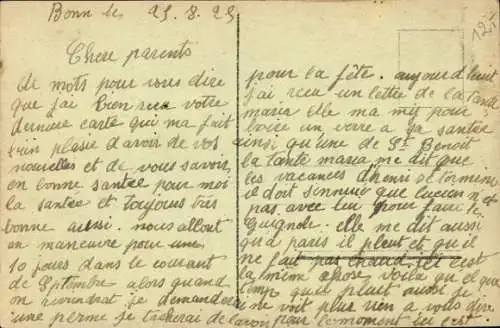 Bonn le 25.8.25
12F
Chers parents
de mots pour vous dire
que j'ai bien recu votre
derniere carte qui ma fait
bien plaisir d'avoir de vos
nouvelles et de vous savoir
en bonne santée pour moi
la santée et toujours très
bonne aussi. nous allont
en maneuvre pour une
10 jours dans le courant
de Septembre alors quand
on reviendrat je demanderai
une perme je tacherai de l'avoir
pour la fête. aujourd'huit
j'ai recu un lettre de la tante
maria elle ma mis pour
boire un verre a sa santée
ainsi qu'une de St Benoit
la tante maria me dit que
les vacances d'henri et termine
il doit s'ennuier que lucien n'et
pas avec lui pour faire le
guignole. elle me dit aussi
qu'a paris il pleut et qu'il
ne fait pas chaud ici c'est
la même chose voila qu'el que
temp que pluit aussi je
ne voit plus rien a vous dire
pour le moment